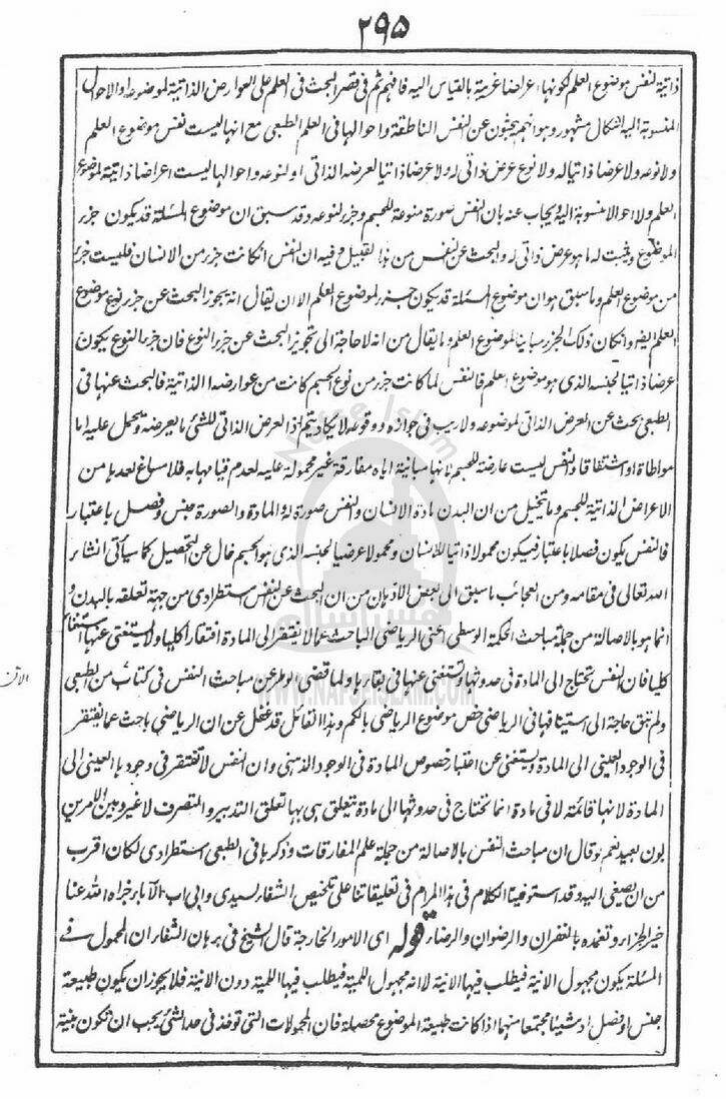 ٢٩٥
ذاتية لنفس موضوع العلم لكونها اعراضا غريبة بالقياس اليه فافهم ثم فى قصر البحث فى العلم على العوارض الذاتية لموضوعه او الاحوال
المنسوبة اليه اشكال مشهور وهو انهم يبحثون عن النفس الناطقة واحوالها فى العلم الطبعى مع انها ليست نفس موضوع العلم
ولا نوعه ولا عرضا ذاتيا له ولا نوع عرض ذاتى له ولا عرضا ذاتيا لعرضه الذاتى او لنوعه واحوالها ليست اعراضا ذاتية لموضوع
العلم ولا احوالا منسوبة اليه ويجاب عنه بان النفس صورة منوعة للجسم وجزء لنوعه وقد سبق ان موضوع المسئلة قد يكون جزء
الموضوع ويثبت له ما هو عرض ذاتى له والبحث عن النفس من هذا القبيل وفيه ان النفس ان كانت جزء من الانسان فليست جزء
من موضوع العلم وما سبق هو ان موضوع المسئلة قد يكون جزء لموضوع العلم الا ان يقال انه يجوز البحث عن جزء نوع موضوع
العلم ايضا وان كان ذلك الجزء مباينا لموضوع العلم وما يقال من انه لا حاجة الى تجويز البحث عن جزء النوع فان جزء النوع يكون
عرضا ذاتيا لجنسه الذى هو موضوع العلم فالنفس لما كانت جزء من نوع الجسم كانت من عوارضه الذاتية فالبحث عنها فى
الطبعى بحث عن العرض الذاتى لموضوعه ولا ريب فى جوازه ووقوعه لا يكاد يتم اذ العرض الذاتى للشئ ما يعرضه ويحمل عليه اما
مواطاة او اشتقاقا والنفس ليست عارضة للجسم لانها مباينة اياه مفارقة غير محمولة عليه لعدم قيامها به فلا مساغ لعدها من
الاعراض الذاتية للجسم وما يتخيل من ان البدن مادة الانسان والنفس صورة له والمادة والصورة جنس وفصل باعتبار
فالنفس يكون فصلا باعتبار فيكون محمولا ذاتيا للانسان ومحمولا عرضيا لجنسه الذى هو الجسم خال عن التحصيل كما سيأتى انشاء
الله تعالى فى مقامه ومن العجائب ما سبق الى بعض الاذهان من ان البحث عن النفس استطرادى من جهة تعلقه بالبدن و
انما هو بالاصالة من جملة مباحث الحكمة الوسطى اعنى الرياضى الباحث عما لا يفتقر الى المادة افتقارا كليا ولا يستغنى عنها استغناء
كليا فان النفس تحتاج الى المادة فى حدوثها وتستغنى عنها فى بقائها ولما قضى الوطر عن مباحث النفس فى كتاب من الطبعى
ولم تبق حاجة الى استيفائها فى الرياضى خص موضوع الرياضى بالكم وهذا القائل قد غفل عن ان الرياضى باحث عما يفتقر
فى الوجود العينى الى المادة ويستغنى عن اعتبار خصوص المادة فى الوجود الذهنى وان النفس لا تفتقر فى وجودها العينى الى
المادة لانها قائمة لا فى مادة انما تحتاج فى حدوثها الى مادة يتعلق هى بها تعلق التدبير والتصرف لا غير وبين الامرين
بون بعيد نعم لو قال ان مباحث النفس بالاصالة من جملة علم المفارقات وذكرها فى الطبعى استطرادى لكان اقرب
من ان يصغى اليه وقد استوفينا الكلام فى هذا المرام فى تعليقاتنا على تلخيص الشفاء لسيدى وابى اب الآباء جزاه الله عنا
خير الجزاء وتغمده بالغفران والرضوان والرضاء قوله اى الامور الخارجة قال الشيخ فى برهان الشفاء ان المحمول فى
المسئلة يكون مجهول الانية فيطلب فيها الانية لانه مجهول اللمية فيطلب فيها اللمية دون الانية فلا يجوز ان يكون طبيعة
جنس او فصل او شيئا مجتمعا منهما اذا كانت طبيعة الموضوع محصلة فان المحمولات التى توخذ فى حد الشئ يجب ان تكون بينة
Nafse Islam
نفس اسلام
WWW.NAFSEISLAM.COM